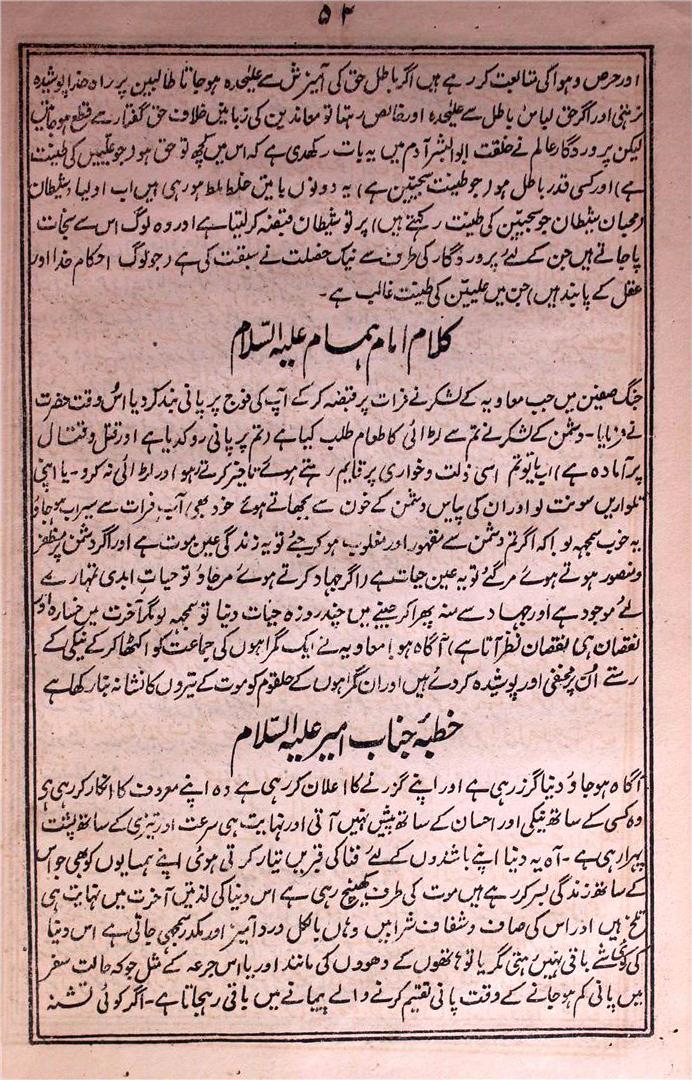 ۵۲
اور حرص و ہوا کی متابعت کر رہے ہیں اگر باطل حق کی آمیزش سے علیٰحدہ ہو جاتا طالبین پر راہ خدا پوشیدہ
نرہتی اور اگر حق لباس باطل سے علیٰحدہ اور خالص رہتا تو معاندین کی زبانیں خلاف حق گفتار سے قطع ہو جاتیں
لیکن پروردگار عالم نے خلقت ابوالبشر آدم میں یہ بات رکھدی ہے کہ اس میں کچھ تو حق ہو (جو علیین کی طینت
ہے) اور کسی قدر باطل ہو (جو طینت سجیین ہے) یہ دونوں باتیں خلط ملط ہو رہی ہیں اب اولیاء شیطان
(محبان شیطان جو سجیین کی طینت رکھتے ہیں) پر تو شیطان قبضہ کر لیتا ہے اور وہ لوگ اس سے نجات
پا جاتے ہیں جن کے لئے پروردگار کی طرف سے نیک خصلت نے سبقت کی ہے (جو لوگ احکام خدا اور
عقل کے پابند ہیں) جن میں علیین کی طینت غالب ہے۔
کلام امام ہمام علیہ السلام
جنگ صفین میں جب معاویہ کے لشکر نے فرات پر قبضہ کر کے آپ کی فوج پر پانی بند کر دیا اُس وقت حضرت
نے فرمایا۔ دشمن کے لشکر نے تم سے لڑائی کا طعام طلب کیا ہے (تم پر پانی روکدیا ہے اور قتل و قتال
پر آمادہ ہے) اب یا تو تم اسی ذلت و خواری پر قایم رہتے ہوئے تاخیر کرتے رہو اور لڑائی نہ کرو۔ یا اپنی
تلواریں سونت لو اور ان کی پیاس دشمن کے خون سے بجھاتے ہوئے خود بھی آب فرات سے سیراب ہو جاؤ
یہ خوب سمجھ لو کہ اگر تم دشمن سے مقہور اور مغلوب ہو کر جئے تو یہ زندگی عین موت ہے اور اگر دشمن پر مظفر
و منصور ہوتے ہوئے مر گئے تو یہ عین حیات ہے (اگر جہاد کرتے ہوئے مر جاؤ تو حیات ابدی تمہارے
لئے موجود ہے اور جہاد سے منہ پھرا کر جینے میں چند روزہ حیات دنیا تو سمجھ لو مگر آخرت میں خسارہ اور
نقصان ہی نقصان نظر آتا ہے) آگاہ ہو! معاویہ نے ایک گمراہوں کی جماعت کو اکٹھا کر کے نیکی کے
رستے اُن پر مخفی اور پوشیدہ کر دئے ہیں اور ان گمراہوں کے حلقوم کو موت کے تیروں کا نشانہ بنا رکھا ہے
خطبۂ جناب امیر علیہ السلام
آگاہ ہو جاؤ دنیا گزر رہی ہے اور اپنے گزرنے کا اعلان کر رہی ہے وہ اپنے معروف کا انکار کر رہی ہے
وہ کسی کے ساتھ نیکی اور احسان کے ساتھ پیش نہیں آتی اور نہایت ہی سرعت اور تیزی کے ساتھ پشت
پھرا رہی ہے۔ آہ یہ دنیا اپنے باشندوں کے لئے فنا کی قبریں تیار کرتی ہوئی اپنے ہمسایوں کو بھی جو اس
کے ساتھ زندگی بسر کر رہے ہیں موت کی طرف کھینچ رہی ہے اس دنیا کی لذتیں آخرت میں نہایت ہی
تلخ ہیں اور اس کی صاف و شفاف شرابیں وہاں بالکل درد آمیز اور مکدر سمجھی جاتی ہے اس دنیا
کی کوئی شے باقی نہیں رہتی مگر یا تو ہاتھوں کے دھووں کی مانند اور یا اس جرعہ کے مثل جو کہ حالت سفر
میں پانی کم ہو جانے کے وقت پانی تقیم کرنے والے پیمانے میں باقی رہجاتا ہے۔ اگر کوئی تشنہ